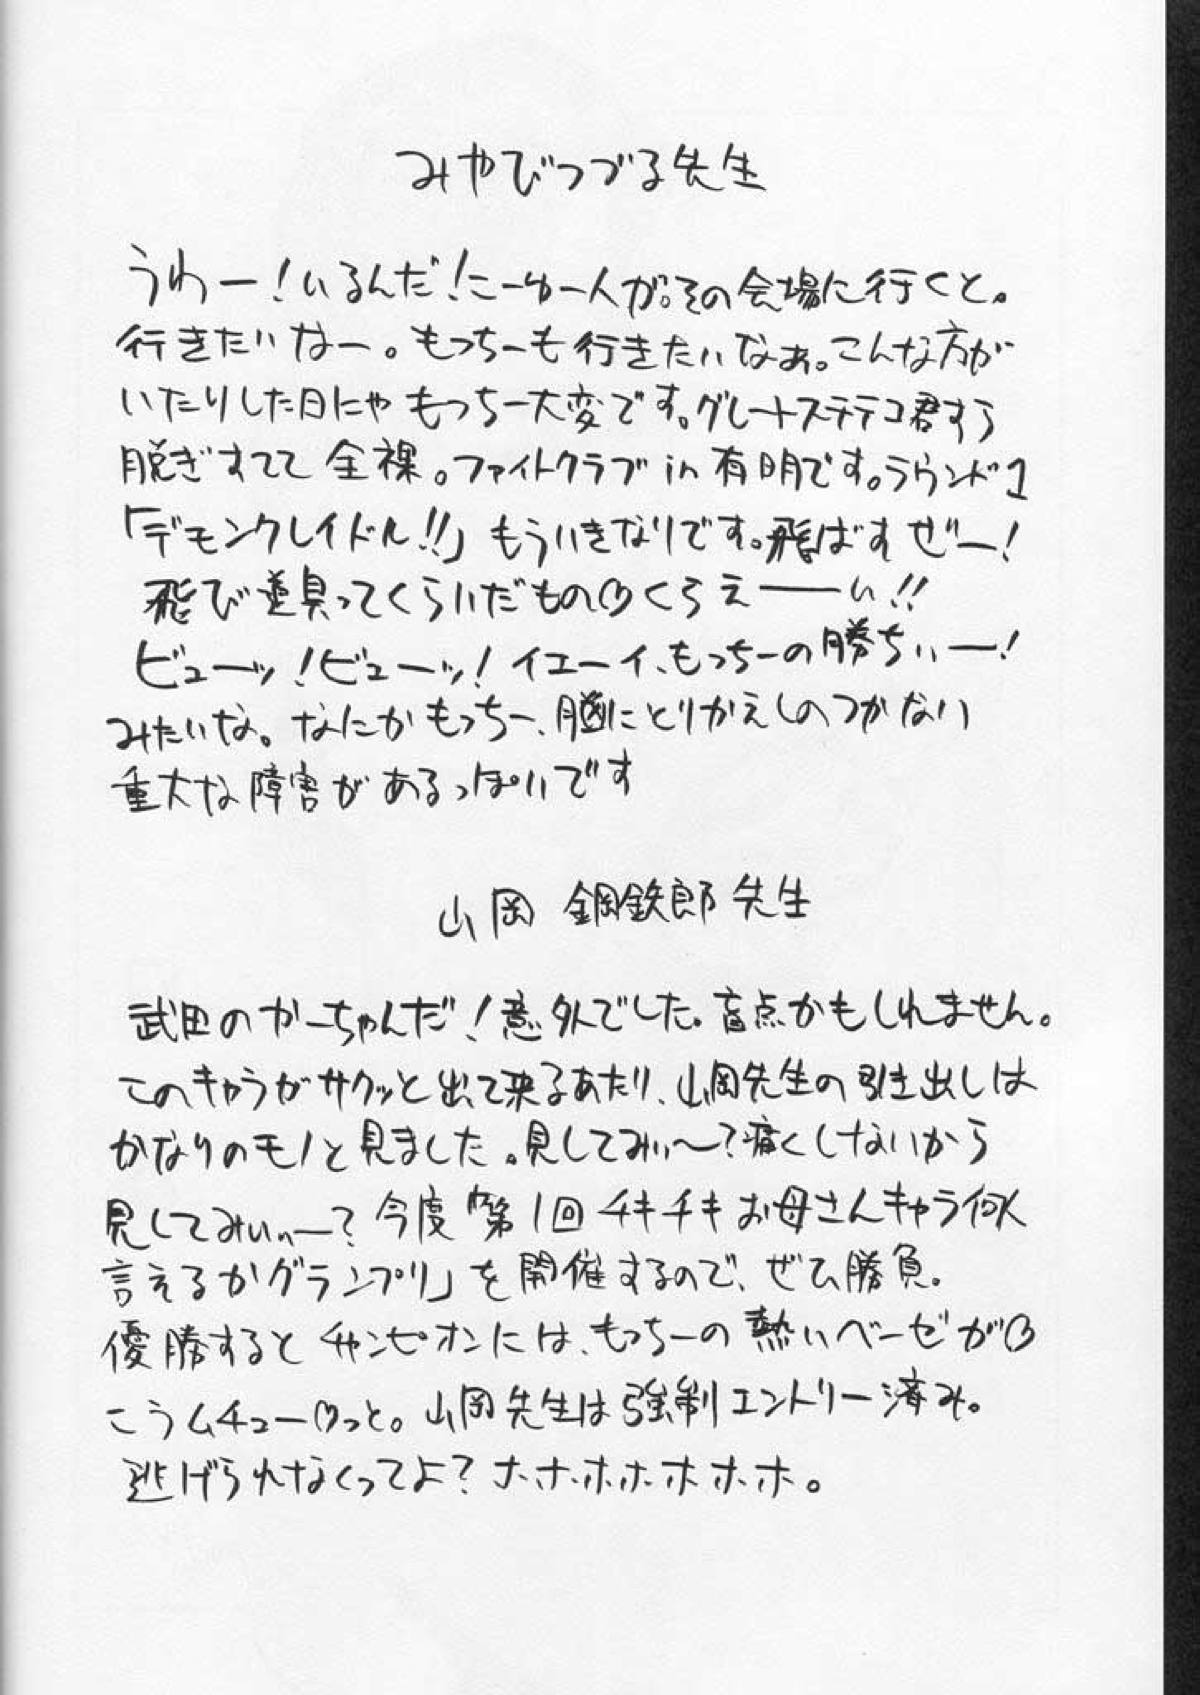 みやびつづる先生
うわー!いるんだ!こーゆー人が。その会場に行くと。
行きたいなー。もっちーも行きたいなぁ。こんな方が
いたりした日にゃもっちー大変です。グレートステテコ君すら
脱ぎすてて全裸。ファイトクラブin有明です。ラウンド1
「デモンクレイドル!!」もういきなりです。飛ばすぜー!
飛び道具ってくらいだもの♡くらえ――い!!
ビューッ!ビューッ!イエーイ、もっちーの勝ちぃー!
みたいな。なにかもっちー、脳にとりかえしのつかない
重大な障害があるっぽいです
山岡鋼鉄郎先生
武田のかーちゃんだ!意外でした。盲点かもしれません。
このキャラがサクッと出て来るあたり、山岡先生の引き出しは
かなりのモノと見ました。見してみぃ〜?痛くしないから
見してみぃぃー?今度「第1回チキチキお母さんキャラ何人
言えるかグランプリ」を開催するので、ぜひ勝負。
優勝するとチャンピオンには、もっちーの熱いベーゼが♡
こうムチュー♡っと。山岡先生は強制エントリー済み。
逃げられなくってよ?ホホホホホホホ。